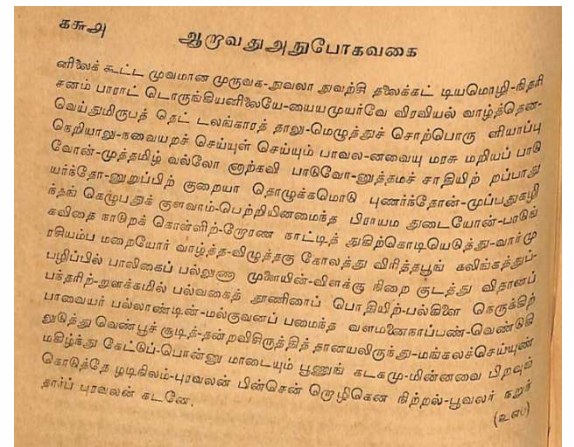 ௧௬அ
ஆறாவது அநுபோகவகை
னிலைக் கூட்ட முவமான முருவக-நுவலா நுவற்சி தலைக்கட் டியமொழி-நிதரி
சனம் பாராட் டொருங்கியனிலையே-யையமுயர்வே விரவியல் வாழ்த்தென-
வெய்துமிருபத் தெட் டலங்காரத் தாலு-மெழுத்துச் சொற்பொரு ளியாப்பு
நெறியாலு-நவையறச் செய்யுள் செய்யும் பாவல-னவையு மரசு மறியப் பாடு
வோன்-முத்தமிழ் வல்லோ னாற்கவி பாடுவோ-னுத்தமச் சாதியிற் றப்பாது
யர்ந்தோ-னுறுப்பிற் குறையா தொழுக்கமொடு புணர்ந்தோன்-முப்பதுகழி
ந்தங் கெழுபதுக் குளவாம்-பெற்றியினமைந்த பிராயம துடையோன்-பாடுங்
கவிதை நாடுறக் கொள்ளிற்-றோரண நாட்டித் துகிற்கொடியெடுத்து-வார்மு
ரசியம்ப மறையோர் வாழ்த்த-விழுத்தகு கோலத்து விரித்தபூங் கலிங்கத்துப்-
பழிப்பில் பாலிகைப் பல்லுணா முளையின்-விளக்கு நிறை குடத்து விதானப்
பந்தரிற்-றுளக்கமில் பல்வகைத் தூணிணரப் பொதியிற்-பல்கிளை நெருக்கிற்
பாவையர் பல்லாண்டின்-மல்குவனப் பமைந்த வளமனைநாப்பண்-வெண்டுகி
லுடுத்து வெண்பூச் சூடித்-தன்றவிசிருத்தித் தானயலிருந்து-மங்கலச்செய்யுண்
மகிழ்ந்து கேட்டுப்-பொன்னு மாடையும் பூணுங் கடகமு-மின்னவை பிறவுங்
கொடுத்தே ழடிநிலம்-புரவலன் பின்சென் றொழிகென நிற்றல்-பூவலர் நறுந்
தார்ப் புரவலன் கடனே.